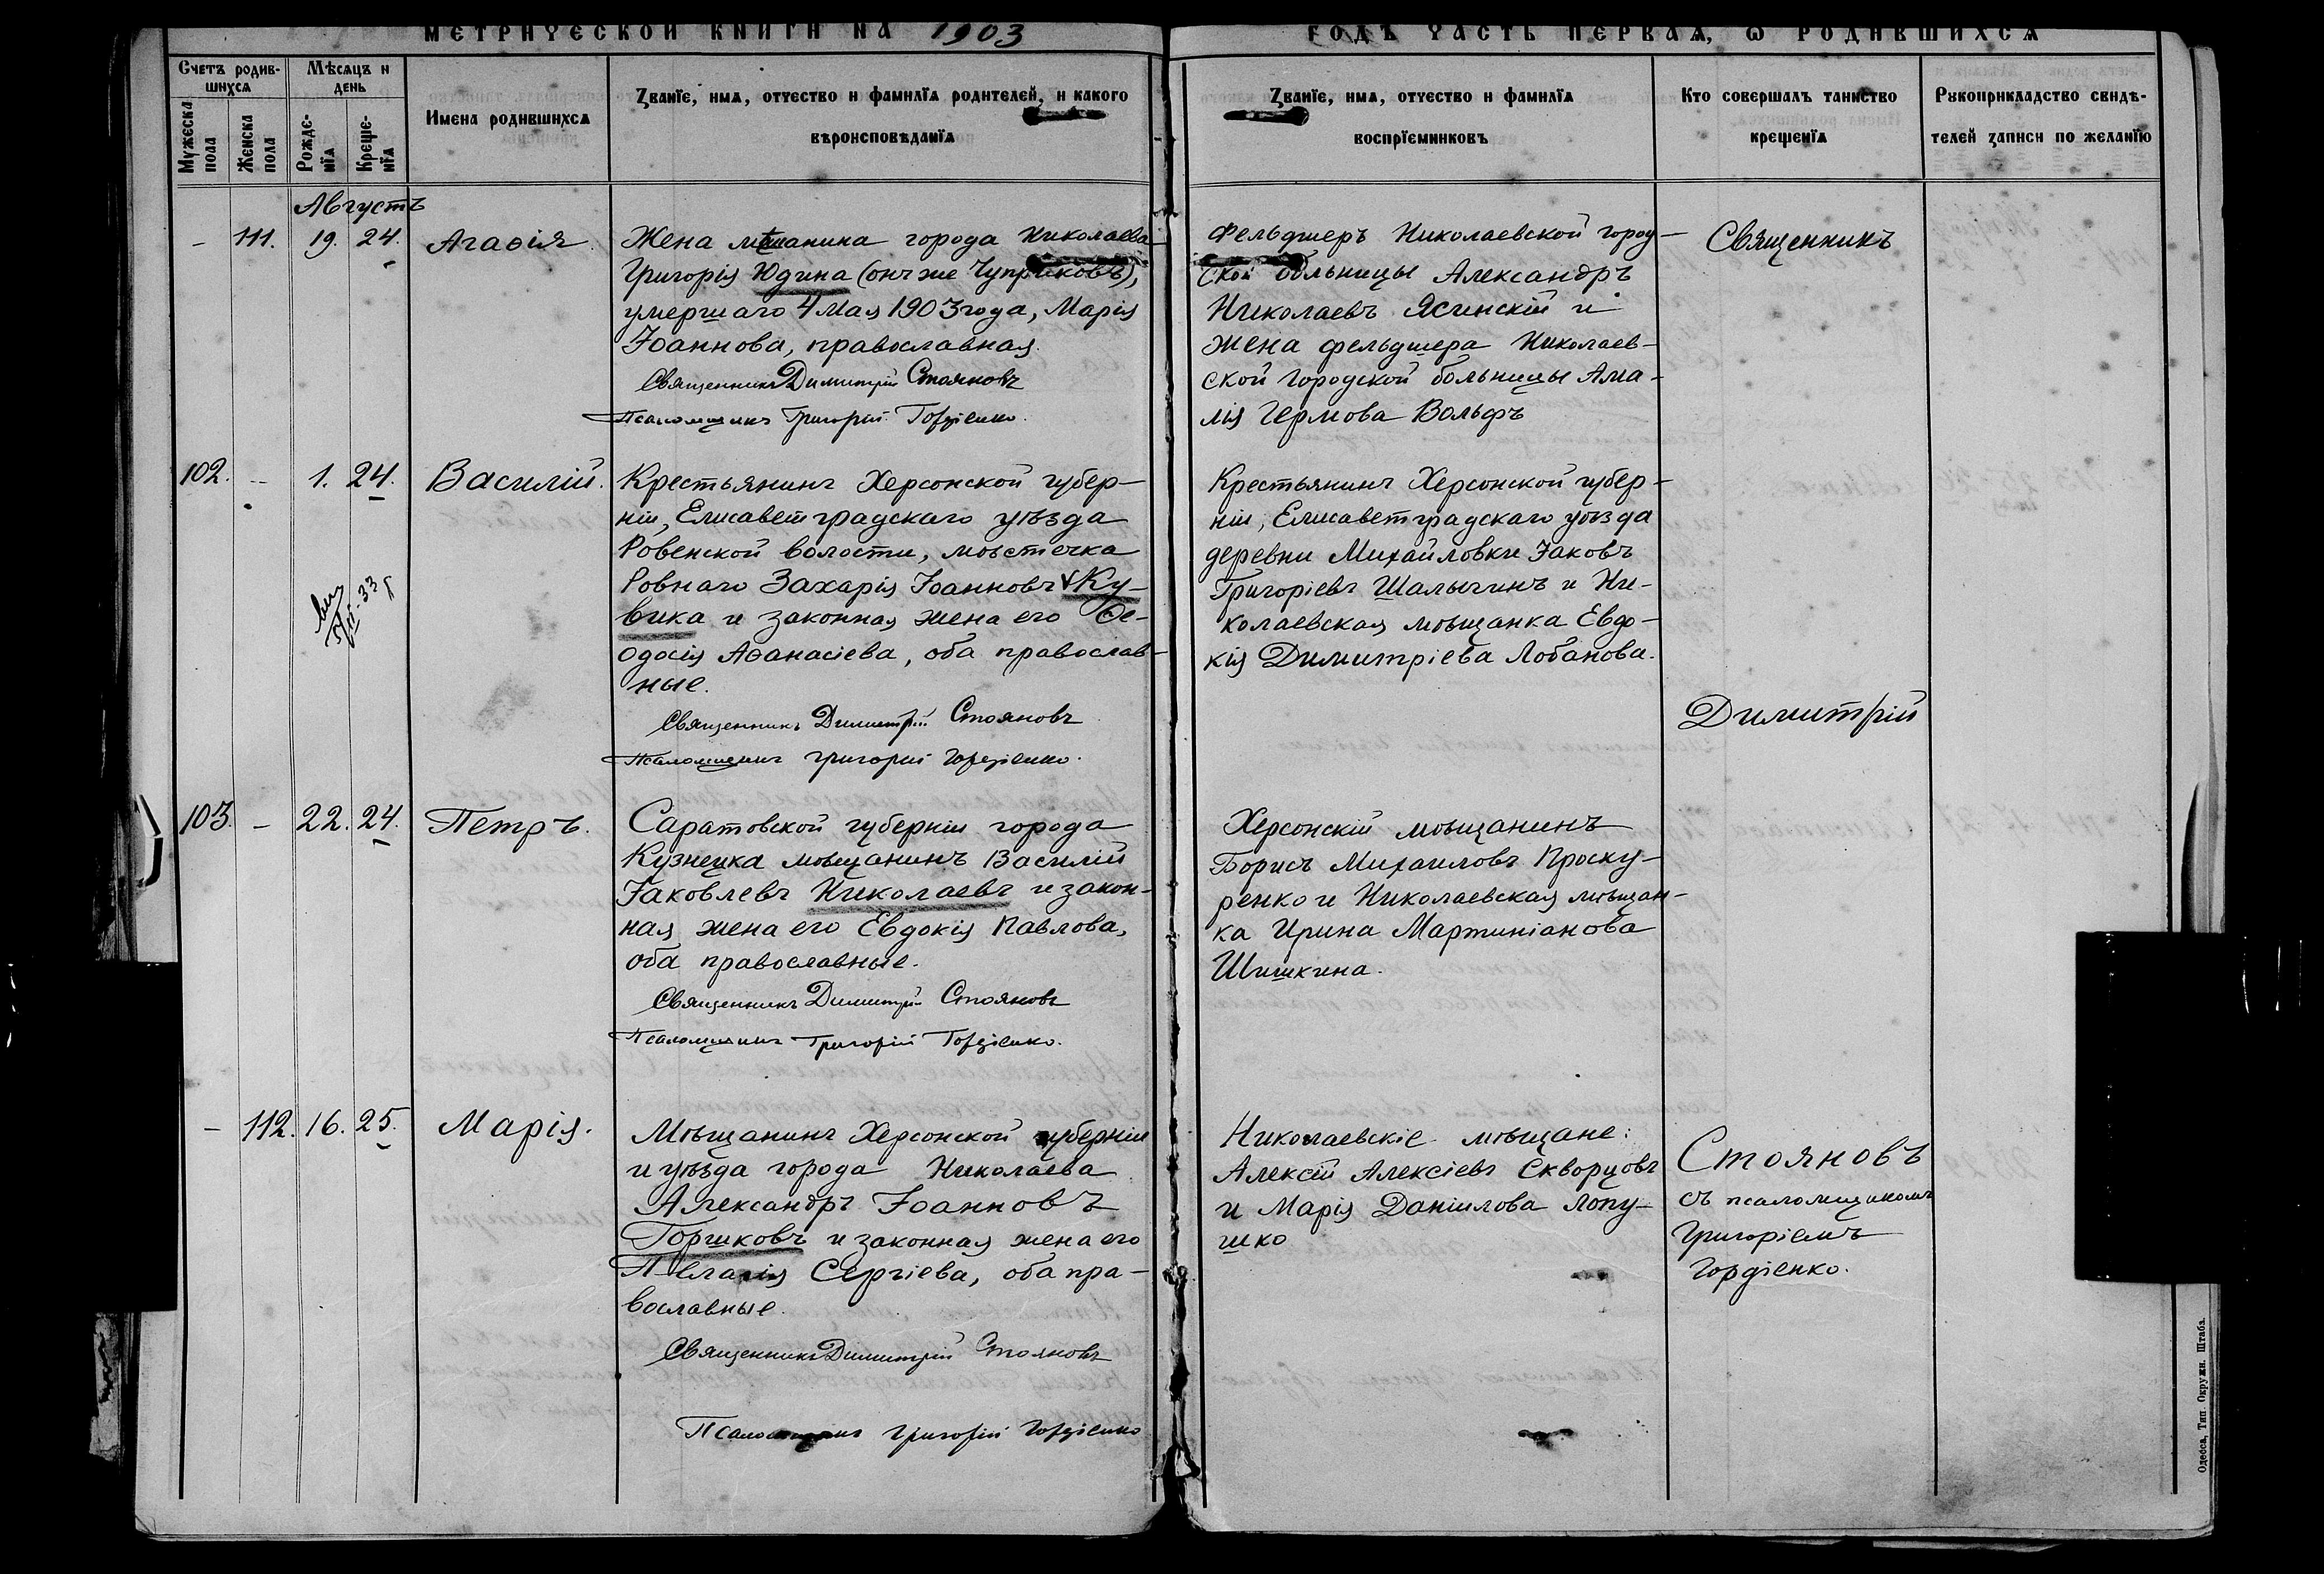 МЕТРИЧЕСКОЙ КНИГИ НА 1903
ГОДЪ ЧАСТЬ ПЕРВАЯ, Ѡ РОДИВШИХСЯ
Счетъ родив-
шихся
Мѣсяцъ и
день
Мужеска
пола
Женска
пола
Рожде-
нїя
Креще-
нїя
Имена родившихся
Званїе, имя, отчество и фамилїя родителей, и какого
вѣроисповѣданїя
Званїе, имя, отчество и фамилїя
воспрїемниковъ
Кто совершалъ таинство
крещенїя
Рукоприкладство свидѣ-
телей записи по желанїю
Августъ
– 111. 19. 24. Агаѳія.
Жена мѣщанина города Николаева
Григорія Юдина (онъ же Чуприковъ),
умершаго 4 Мая 1903 года, Марія
Іоаннова, православная.
Священникъ Димитрій Стояновъ
Псаломщикъ Григорій Гордіенко.
Фельдшеръ Николаевской город-
ской больницы Александръ
Николаевъ Ясинскій и
жена фельдшера Николаев-
ской городской больницы Ама-
лія Гермова Вольфъ
Священникъ
102. – 1. 24. Василій.
Крестьянинъ Херсонской губер-
ніи, Елисаветградскаго уѣзда
Ровенской волости, мѣстечка
Ровнаго Захарія Іоанновъ Ку-
вика и законная жена его Ѳе-
одосія Аѳанасіева, оба православ-
ные.
Священникъ Димитрій Стояновъ
Псаломщикъ Григорій Гордіенко.
Крестьянинъ Херсонской губер-
ніи, Елисаветградскаго уѣзда
деревни Михайловки Іаковъ
Григоріевъ Шалыгинъ и Ни-
колаевская мѣщанка Евдо-
кія Димитріева Лобанова.
Димитрій
103. – 22. 24. Петръ.
Саратовской губерніи города
Кузнецка мѣщанинъ Василій
Іаковлевъ Николаевъ и закон-
ная жена его Евдокія Павлова,
оба православные.
Священникъ Димитрій Стояновъ
Псаломщикъ Григорій Гордіенко.
Херсонскій мѣщанинъ
Борисъ Михаиловъ Проску-
ренко и Николаевская мѣщан-
ка Ирина Мартиніанова
Шишкина.
– 112. 16. 25. Марія.
Мѣщанинъ Херсонской губерніи
и уѣзда города Николаева
Александръ Іоанновъ
Горшковъ и законная жена его
Пелагія Сергіева, оба пра-
вославные.
Священникъ Димитрій Стояновъ
Псаломщикъ Григорій Гордіенко
Николаевскіе мѣщане:
Алексій Алексіевъ Скворцовъ
и Марія Даніилова Лопу-
шко
Стояновъ
съ псаломщикомъ
Григоріемъ
Гордіенко.
Одесса, Тип. Окружн. Штаба.